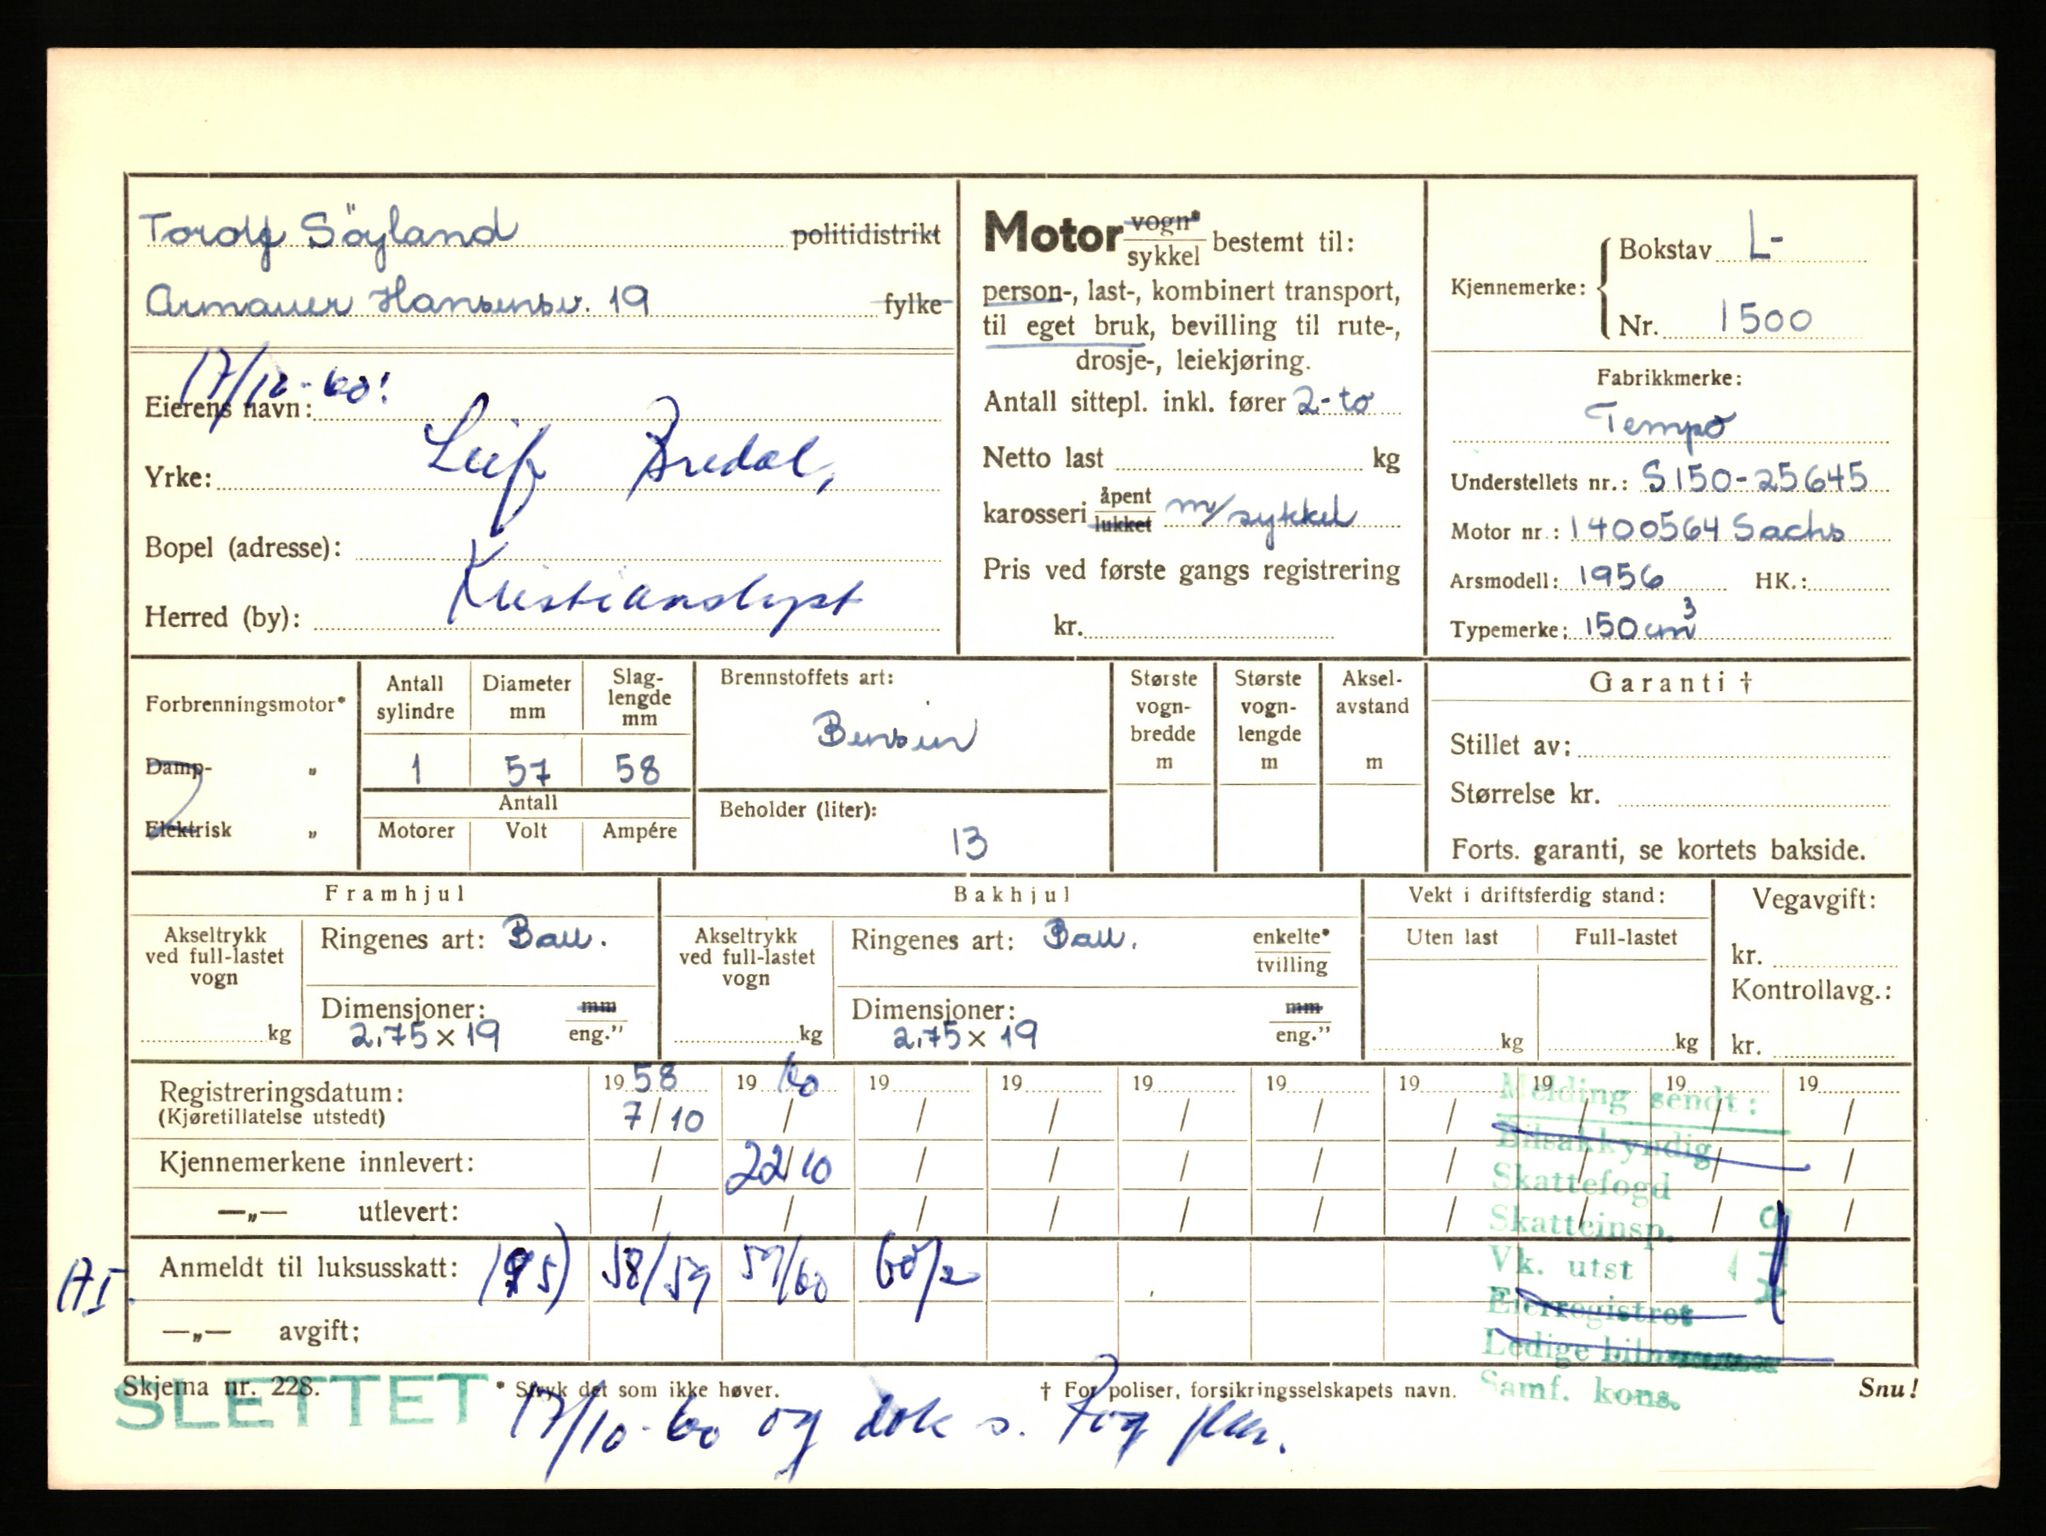 Torolf Söyland politidistrikt
Armauer Hansensv. 19 fylke
17/12-60!
Eierens navn:
Leif Bredal,
Yrke:
Bopel (adresse):
Kristianslyst
Herred (by):
Motor vogn*
sykkel bestemt til:
person-, last-, kombinert transport,
til eget bruk, bevilling til rute-,
drosje-, leiekjøring.
Antall sittepl. inkl. fører 2-to
Netto last kg
karosseri åpent
lukket m/sykkel
Pris ved første gangs registrering
kr.
Kjennemerke:
Bokstav L-
Nr. 1500
Fabrikkmerke:
Tempo
Understellets nr.: S150-25645
Motor nr.: 1400564 Sachs
Arsmodell: 1956 HK.:
Typemerke: 150 cm³
Forbrenningsmotor*
Damp- „
Elektrisk „
2
Antall sylindre
Diameter mm
Slag-
lengde
mm
1 57 58
Antall
Motorer Volt Ampére
Brennstoffets art:
Bensin
Beholder (liter):
13
Største
vogn-
bredde
m
Største
vogn-
lengde
m
Aksel-
avstand
m
Garanti †
Stillet av:
Størrelse kr.
Forts. garanti, se kortets bakside.
Framhjul
Akseltrykk
ved full-lastet
vogn
kg
Ringenes art: Ball.
Dimensjoner: mm
2.75 x 19 eng.”
Bakhjul
Akseltrykk
ved full-lastet
vogn
kg
Ringenes art: Ball. enkelte*
tvilling
Dimensjoner: mm
2.75 x 19 eng.”
Vekt i driftsferdig stand:
Uten last Full-lastet
kg kg
Vegavgift:
kr.
Kontrollavg.:
kr.
Registreringsdatum: 19 58 19 60 19 19 19 19 19 19 19 19
(Kjøretillatelse utstedt) 7/10 / / / / / / / / /
Kjennemerkene innlevert: / 22/10 / / / / / / / /
—„— utlevert: / / / / / / / / / /
Anmeldt til luksusskatt: 58/59 59/60
—„— avgift;
Melding sendt:
Bilsakkyndig
Skattefogd
Skatteinsp.
Vk. utst
Eierregistret
Ledige
Samf. kons.
Skjema nr. 228.
SLETTET
* Stryk det som ikke høver.
† For poliser, forsikringsselskapets navn.
Snu!
17/10-60 og dok s.